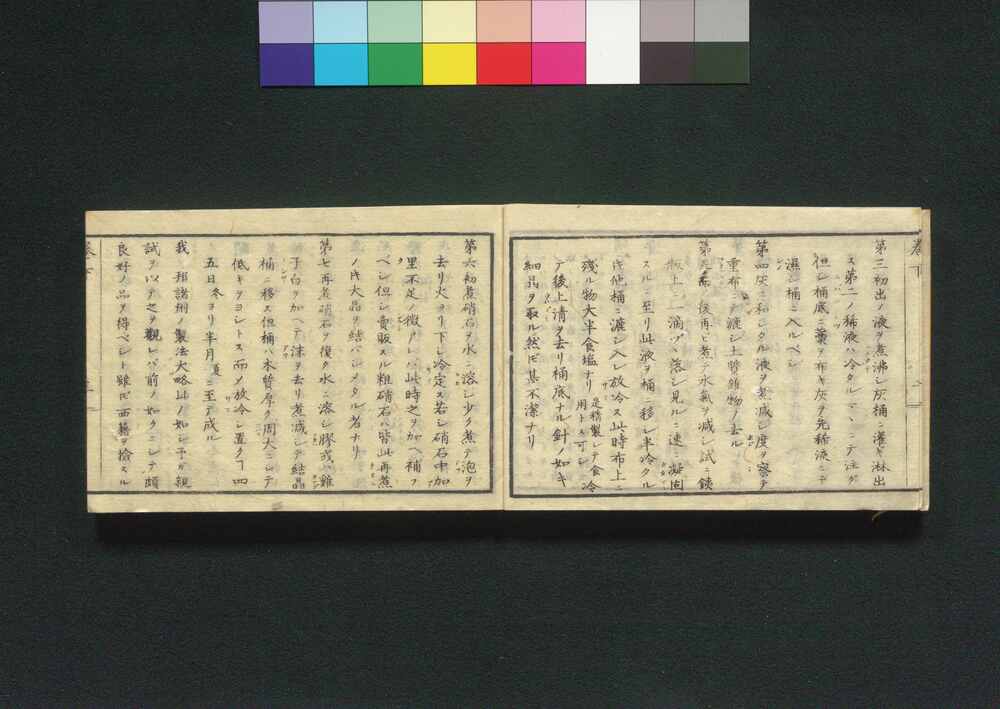 第三初出ノ液ヲ煮沸シ灰桶ニ灌ギ淋出
ス第二ノ稀液ハ冷タルマヽニテ注グ
但シ桶底ニ藁ヲ布キ灰ヲ先稀液ニテ
濕シ桶ニ入ルベシ
第四灰ニ和シタル液ヲ煮減シ度ヲ察テ
重布ニテ漉シ土賛雑物ノ去ル
後再ビ煮テ水氣ヲ減シ試ニ鐵
板上ニ一滴ヅヽ落シ見ルニ速ニ凝固
スルニ至リ此液ヲ桶ニ移シ半冷タル
氏他桶ニ漉シ入レ放冷ス此時布上ニ
残ル物大半食塩ナリ
是精製シテ食
用トス可シ
冷
テ後上清ヲ去リ桶底ナル針ノ如キ
細晶ヲ取ル然ドモ其不潔ナリ
第六初煮硝石ヲ水ニ溶シ少ク煮テ泡ヲ
去リ火ヨリ下シ冷定ス若シ硝石中加
里不足ノ徴アレバ此時之ヲ加ヘ補フ
ベシ但シ賣販スル粗硝石ハ皆此再煮
ノ氏大晶ヲ結バシメタル者ナリ
第七再煮硝石ヲ復夕水ニ溶シ膠或ハ雞
子白ヲ加ヘテ沫ヲ去リ煮減シテ結晶
桶ニ移ス但桶ハ木質厚ク周大ニシテ
低キヲヨシトス而メ放冷シ置クヿ四
五日冬ヨリ半月夏ニ至テ成ル
我邦諸州ノ製法大略此ノ如シ予カ親
試ヲ以テ之ヲ觀レバ前ノ如クニシテ頗
良好ノ品ヲ得ベシト雖ドモ西籍ヲ撿スル